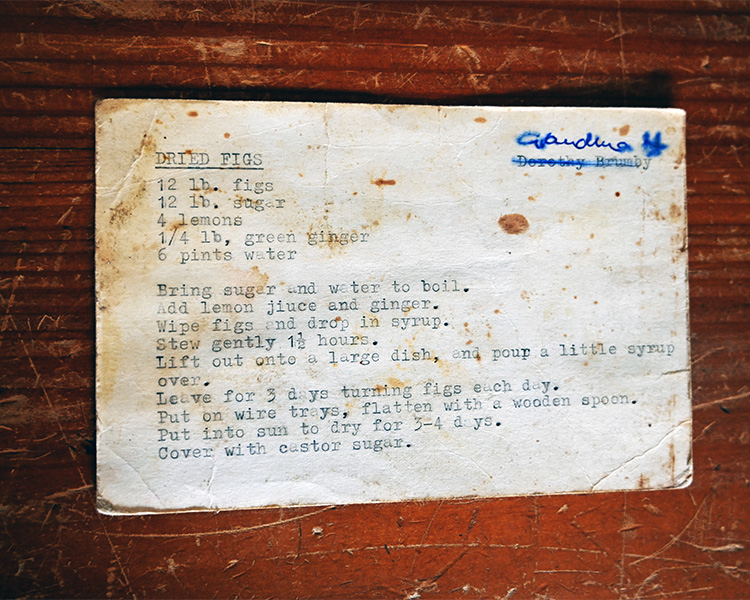 Grandma H
Dorothy Brumby
DRIED FIGS
12 lb. figs
12 lb. sugar
4 lemons
1/4 lb, green ginger
6 pints water
Bring sugar and water to boil.
Add lemon jiuce and ginger.
Wipe figs and drop in syrup.
Stew gently 1½ hours.
Lift out onto a large dish, and pour a little syrup
over.
Leave for 3 days turning figs each day.
Put on wire trays, flatten with a wooden spoon.
Put into sun to dry for 3-4 days.
Cover with castor sugar.